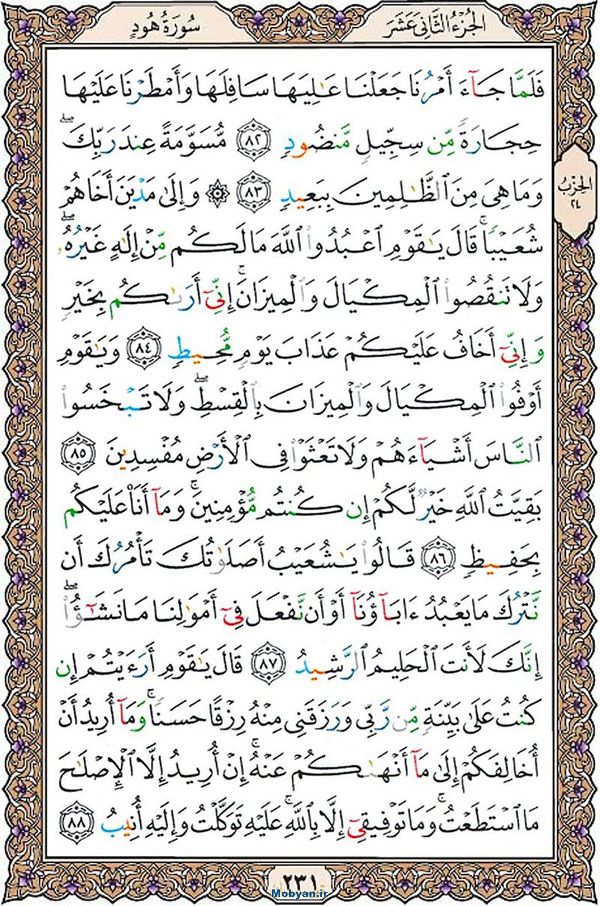 الجزء الثاني عشر
سورة هود
فَلَمَّا جَآءَ أَمْرُنَا جَعَلْنَا عَٰلِيَهَا سَافِلَهَا وَأَمْطَرْنَا عَلَيْهَا
حِجَارَةً مِّن سِجِّيلٍ مَّنضُودٍ ٨٢ مُّسَوَّمَةً عِندَ رَبِّكَۖ
وَمَا هِىَ مِنَ ٱلظَّٰلِمِينَ بِبَعِيدٍ ٨٣ ۞ وَإِلَىٰ مَدْيَنَ أَخَاهُمْ
الحزب
٢٤
شُعَيْبًاۚ قَالَ يَٰقَوْمِ ٱعْبُدُوا۟ ٱللَّهَ مَا لَكُم مِّنْ إِلَٰهٍ غَيْرُهُۥۖ
وَلَا تَنقُصُوا۟ ٱلْمِكْيَالَ وَٱلْمِيزَانَۚ إِنِّىٓ أَرَىٰكُم بِخَيْرٍ
وَإِنِّىٓ أَخَافُ عَلَيْكُمْ عَذَابَ يَوْمٍ مُّحِيطٍ ٨٤ وَيَٰقَوْمِ
أَوْفُوا۟ ٱلْمِكْيَالَ وَٱلْمِيزَانَ بِٱلْقِسْطِۖ وَلَا تَبْخَسُوا۟
ٱلنَّاسَ أَشْيَآءَهُمْ وَلَا تَعْثَوْا۟ فِى ٱلْأَرْضِ مُفْسِدِينَ ٨٥
بَقِيَّتُ ٱللَّهِ خَيْرٌ لَّكُمْ إِن كُنتُم مُّؤْمِنِينَۚ وَمَآ أَنَا۠ عَلَيْكُم
بِحَفِيظٍ ٨٦ قَالُوا۟ يَٰشُعَيْبُ أَصَلَوٰتُكَ تَأْمُرُكَ أَن
نَّتْرُكَ مَا يَعْبُدُ ءَابَآؤُنَآ أَوْ أَن نَّفْعَلَ فِىٓ أَمْوَٰلِنَا مَا نَشَٰٓؤُا۟ۖ
إِنَّكَ لَأَنتَ ٱلْحَلِيمُ ٱلرَّشِيدُ ٨٧ قَالَ يَٰقَوْمِ أَرَءَيْتُمْ إِن
كُنتُ عَلَىٰ بَيِّنَةٍ مِّن رَّبِّى وَرَزَقَنِى مِنْهُ رِزْقًا حَسَنًاۚ وَمَآ أُرِيدُ أَنْ
أُخَالِفَكُمْ إِلَىٰ مَآ أَنْهَىٰكُمْ عَنْهُۚ إِنْ أُرِيدُ إِلَّا ٱلْإِصْلَٰحَ
مَا ٱسْتَطَعْتُۚ وَمَا تَوْفِيقِىٓ إِلَّا بِٱللَّهِۚ عَلَيْهِ تَوَكَّلْتُ وَإِلَيْهِ أُنِيبُ ٨٨
٢٣١
Mobyan.ir